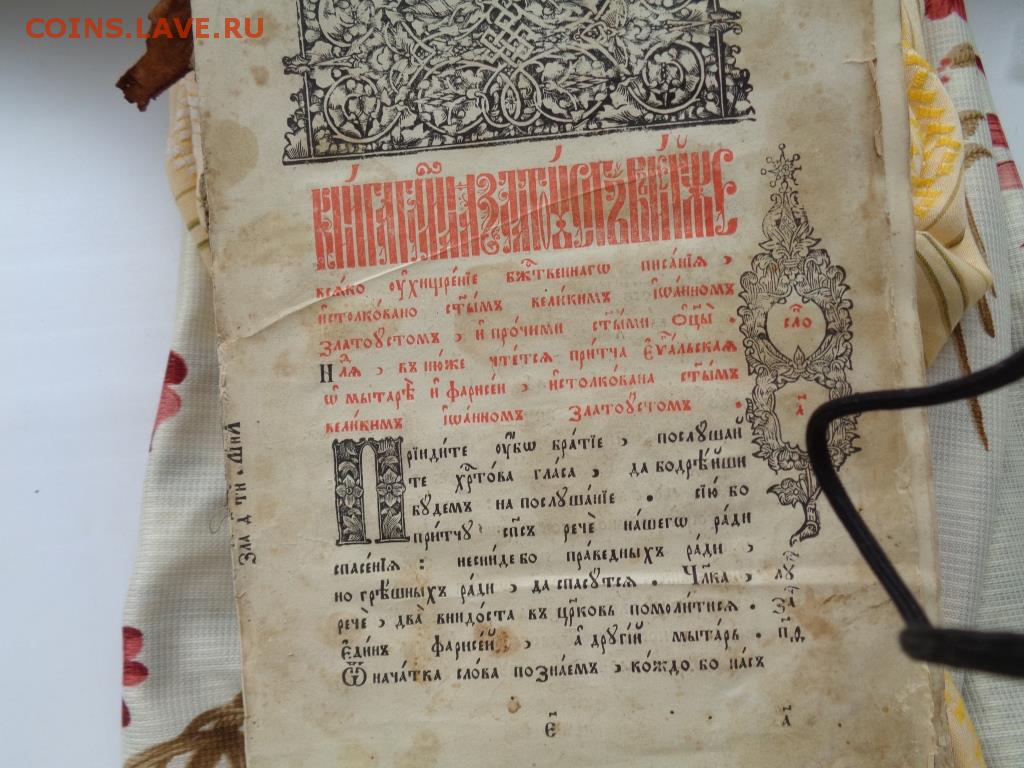 COINS.LAVE.RU
КНИ́ГА ГЛ҃ЕМАѦ ЗЛАТОꙊ́СТЪ В НЕ́ЙЖЕ
всѧ́ко ᲂу҆хищре́нїе бж҃т́веннагѡ писа́нїѧ ,
и҆столкова́но ст҃ы́мъ вели́кимъ і҆ѡа́нномъ
златоꙋ́стомъ , и҆ про́чими ст҃ы́ми ѻ҆ц҃ы̀ .
Нлⷧ҇ѧ , въ ню́же чте́тсѧ при́тча є҆ѵⷢ҇альскаѧ
ѡ҆ мытарѣ̀ и҆ фарисе́и , и҆столко́вана ст҃ы́мъ
вели́кимъ і҆ѡа́нномъ златоꙋ́стомъ .
сло́
а҃
Прїиди́те ᲂу҆́бѡ бра́тїе , послꙋ́шай
те хрⷭ҇то́ва гла́са , да бодрѣ́йши
бꙋ́демъ на послꙋша́нїе . сїю́ бо
при́тчꙋ сп҃съ речѐ на́шегѡ ра́ди
спасе́нїѧ : несни́де бо пра́ведныхъ ра́ди ,
но грѣ́шныхъ ра́ди , да спасꙋ́тсѧ . Чл҃ка ,
речѐ , два̀ внидо́ста въ цр҃ковь помоли́тисѧ .
є҆ди́нъ фарисе́й , а҆ дрꙋгі́й мыта́рь .
Ѿ нача́тка сло́ва позна́емъ , ко́ждо бо на́съ
лꙋ
за
п҃ѳ .
є҃
а҃